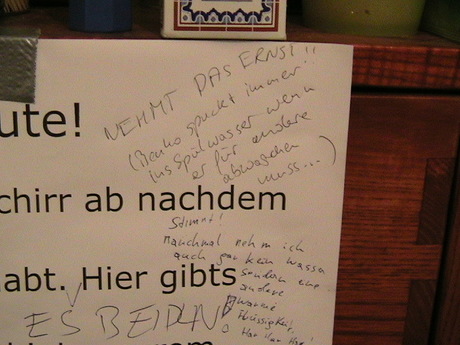 ute!
NEHMT DAS ERNST!!
(Benko spuckt immer
ins Spülwasser wenn
er für andere
abwaschen
muss...)
chirr ab nachdem
Stimmt!
manchmal nehm ich
auch gar kein wasser
sondern eine
andere
warme
Flüssigkeit!
Har Har Har!
abt. Hier gibts
ES BEI